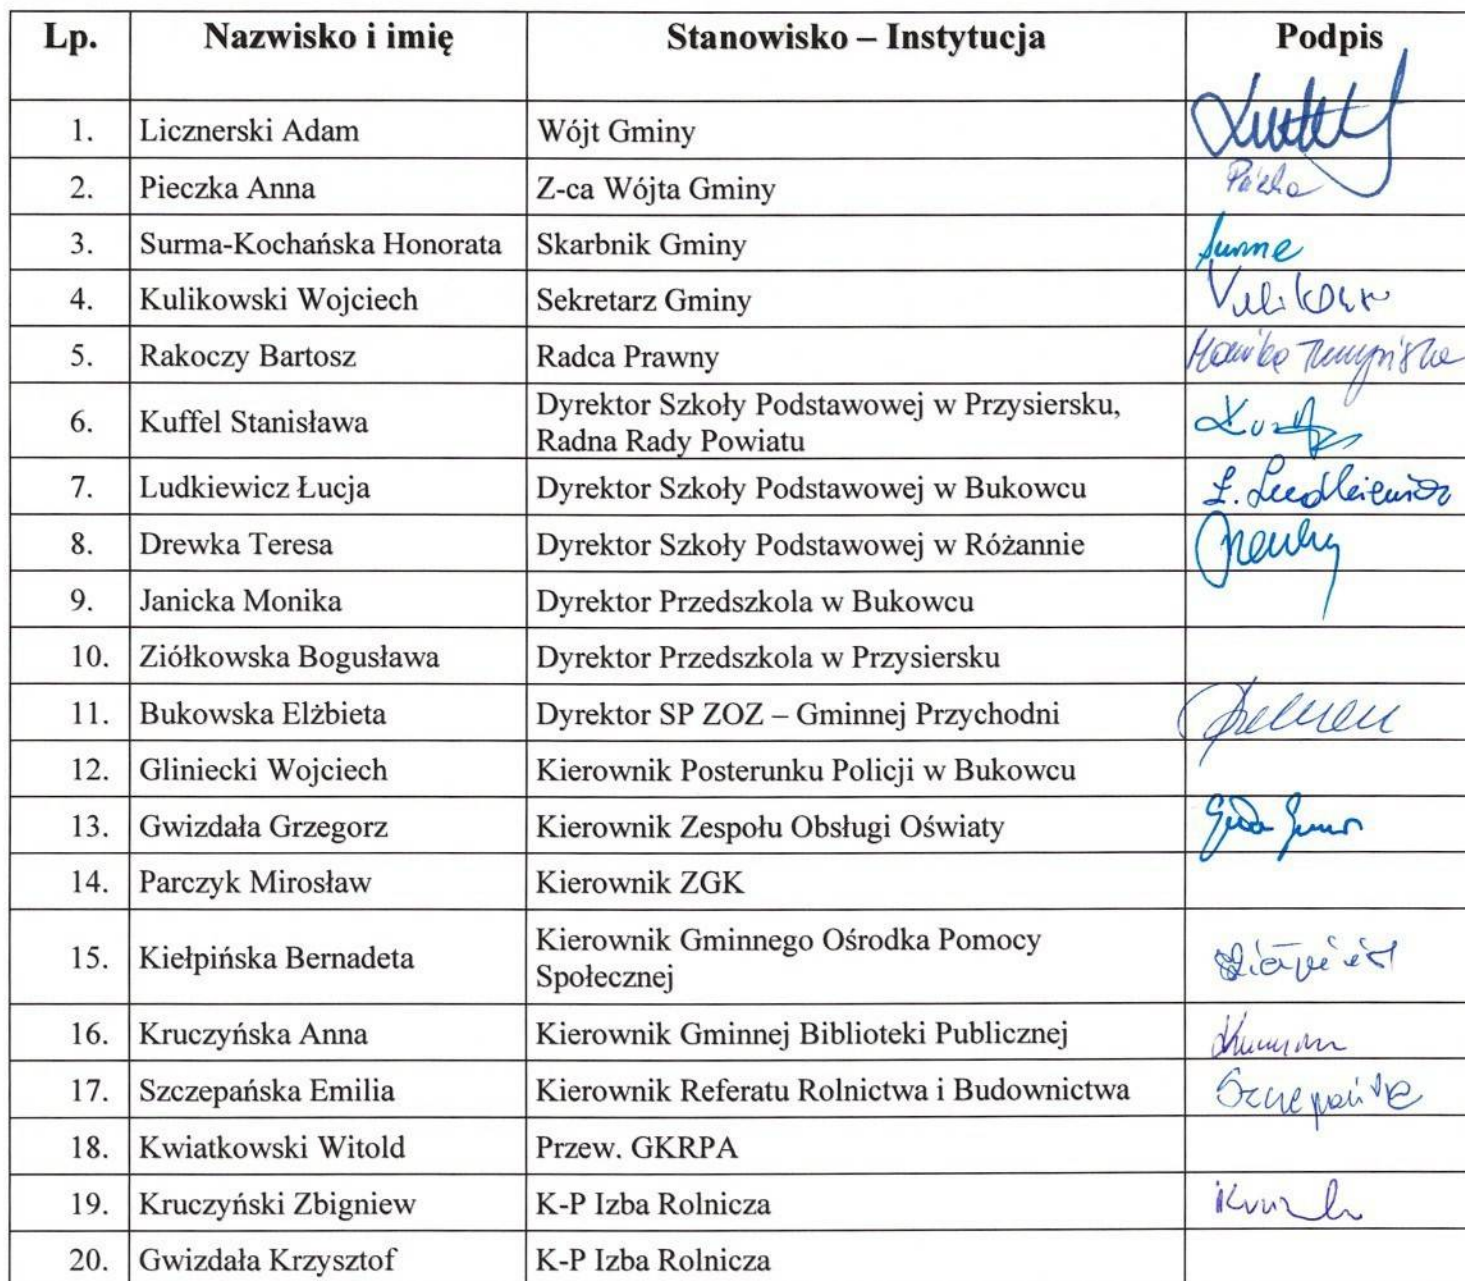 Lp. Nazwisko i imię Stanowisko – Instytucja Podpis
1. Licznerski Adam Wójt Gminy
2. Pieczka Anna Z-ca Wójta Gminy
3. Surma-Kochańska Honorata Skarbnik Gminy
4. Kulikowski Wojciech Sekretarz Gminy
5. Rakoczy Bartosz Radca Prawny
6. Kuffel Stanisława Dyrektor Szkoły Podstawowej w Przysiersku,
Radna Rady Powiatu
7. Ludkiewicz Łucja Dyrektor Szkoły Podstawowej w Bukowcu Ł. Ludkiewicz
8. Drewka Teresa Dyrektor Szkoły Podstawowej w Różannie
9. Janicka Monika Dyrektor Przedszkola w Bukowcu
10. Ziółkowska Bogusława Dyrektor Przedszkola w Przysiersku
11. Bukowska Elżbieta Dyrektor SP ZOZ – Gminnej Przychodni
12. Gliniecki Wojciech Kierownik Posterunku Policji w Bukowcu
13. Gwizdała Grzegorz Kierownik Zespołu Obsługi Oświaty
14. Parczyk Mirosław Kierownik ZGK
15. Kiełpińska Bernadeta Kierownik Gminnego Ośrodka Pomocy
Społecznej
16. Kruczyńska Anna Kierownik Gminnej Biblioteki Publicznej
17. Szczepańska Emilia Kierownik Referatu Rolnictwa i Budownictwa
18. Kwiatkowski Witold Przew. GKRPA
19. Kruczyński Zbigniew K-P Izba Rolnicza
20. Gwizdała Krzysztof K-P Izba Rolnicza